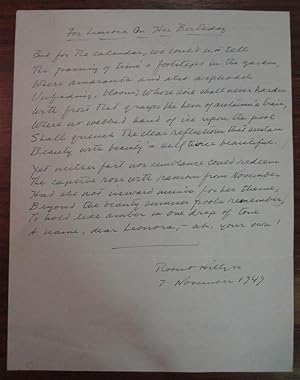 For Leonora On Her Birthday
But for the calendar, we could not tell
The passing of time's footsteps in the garden,
Where amaranth and also asphodel
Unfading, bloom; whose soil shall never harden
With frost that grasps the hem of autumn's train,
Where no webbed hand of ice upon the pool
Shall quench the clear reflections that sustain
Beauty with beauty's self twice beautiful.
Yet neither fact nor semblance could redeem
The captive rose with ransom from November
Had she not inward music for her theme,
Beyond the beauty summer pools remember,
To hold like amber in one drop of tone
A name, dear Leonora, – ah, your own!
Robert Hillyer
7 November 1949